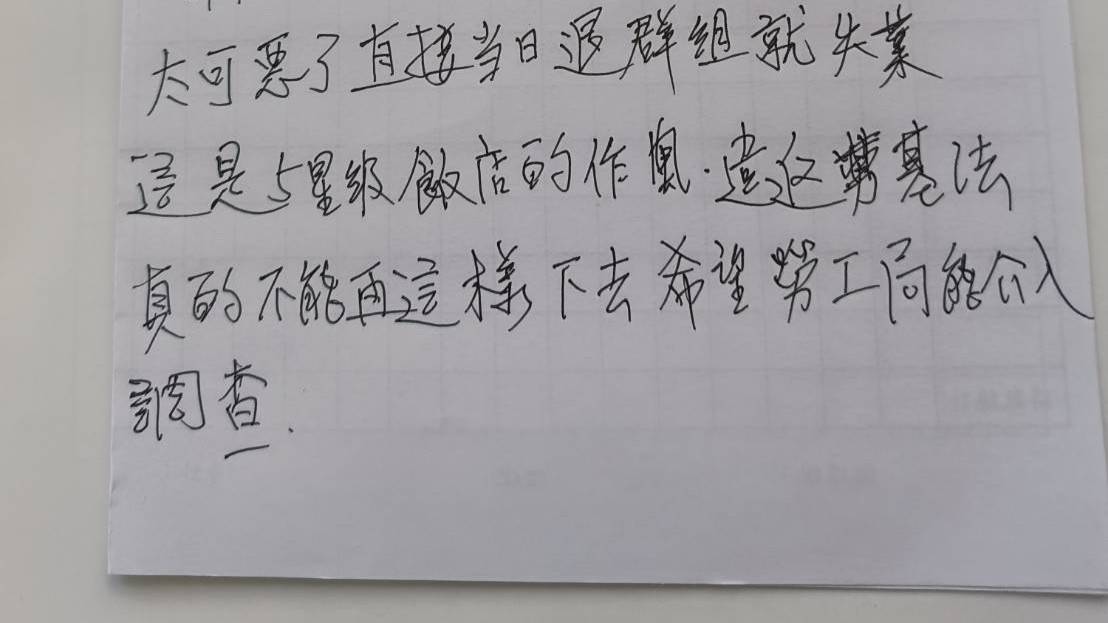 太可惡了直接当日退群組就失業
這是5星級飯店的作風.違反勞基法
真的不能再這樣下去希望勞工局能介入
調查.